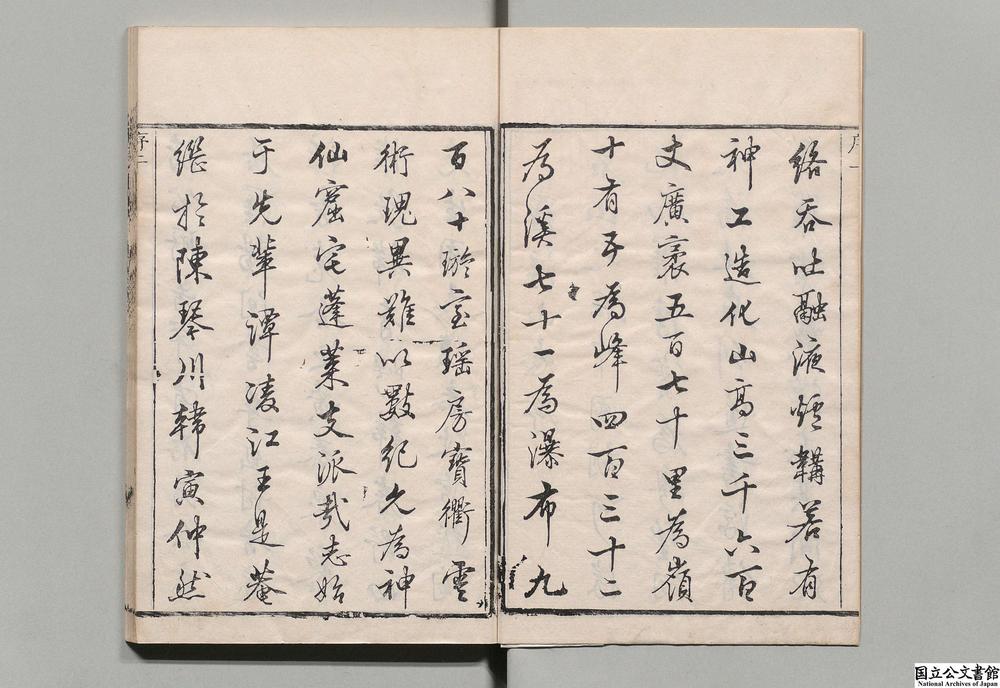 絡吞吐融液爐韛若有
神工造化山高三千六百
丈廣袤五百七十里為嶺
十有五為峰四百三十二
為溪七十一為瀑布九
百八十璇室瑤房寶衢雲
術瑰異難以數紀允為神
仙窟宅蓬萊支派哉志始
于先輩譚凌江王是菴
繼於陳琴川韓寅仲然
序一
序二
国立公文書館
National Archives of Japan